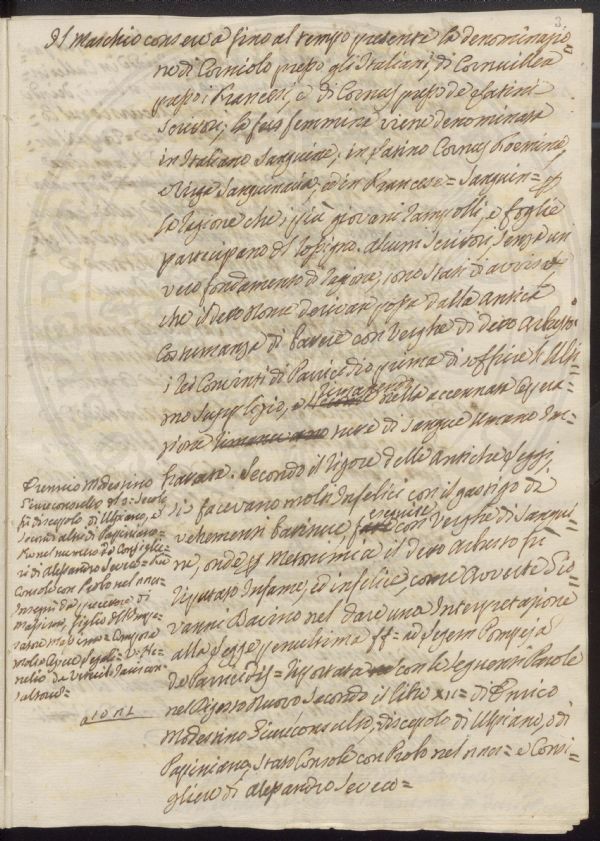 3.
Il Maschio conserva fino al tempo presente la denominazio=
ne di Corniolo presso gl'Italiani, di Cornuillea
presso i Francesi, e di Cornus presso de Latini
Scrittori; la sua femmina viene denominata
in Italiano Sanguine, in Latino Cornus Foemina
e Virga Sanguinea, ed in Francese= Sanguin=
la ragione che i più giovani rampolli, e foglie
participano del rossigno. Alcuni Scrittori senza un
vero fondamento di ragione, sono stati di avviso
che il detto Nome derivar possa dalla antica
Costumanza di battere con Verghe di detto Arbusto
i Rei Convinti di Parricidio prima di soffrire l'ulti=
mo Supplizio, e rimanevano nella accennata
nere di Sangue Umano
Secondo il rigore delle Antiche Leggi
si facevano molti infelici con il gastigo di
vehementi battiture eseguite con Verghe di Sangui=
ne, onde per Metonimia il detto Arbusto fù
riputato Infame, ed infelice, come avverte Gio=
vanni nel dare una Interpretazione
alla Legge penultima ff= ad Legem Pompejā
de Parricidijs= riportata con le seguenti Parole
nel Digesto Nuovo secondo il Libro XII= di Enrico
Modestino Giureconsulto, discepolo di Ulpiano, e di
Papiniano, stato Console con Probo nel e Consi=
gliere di Alessandro Severo=
Erennio Modestino
Giureconsulto del 3: Secolo
fù discepolo di Ulpiano, e
secondo altri di Papiniano
Fù nel numero de Consiglie=
ri di Alessandro Severo= Fu
Console con Probo nel
fù precettore di
Massimo, figlio dell'Impe=
ratore Massimo= Compose
molte Opere Legali=